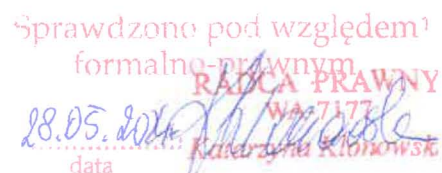 Sprawdzono pod względem
formalno-prawnym
RADCA PRAWNY
WA-7177
28.05.
Katarzyna Klonowsk
data